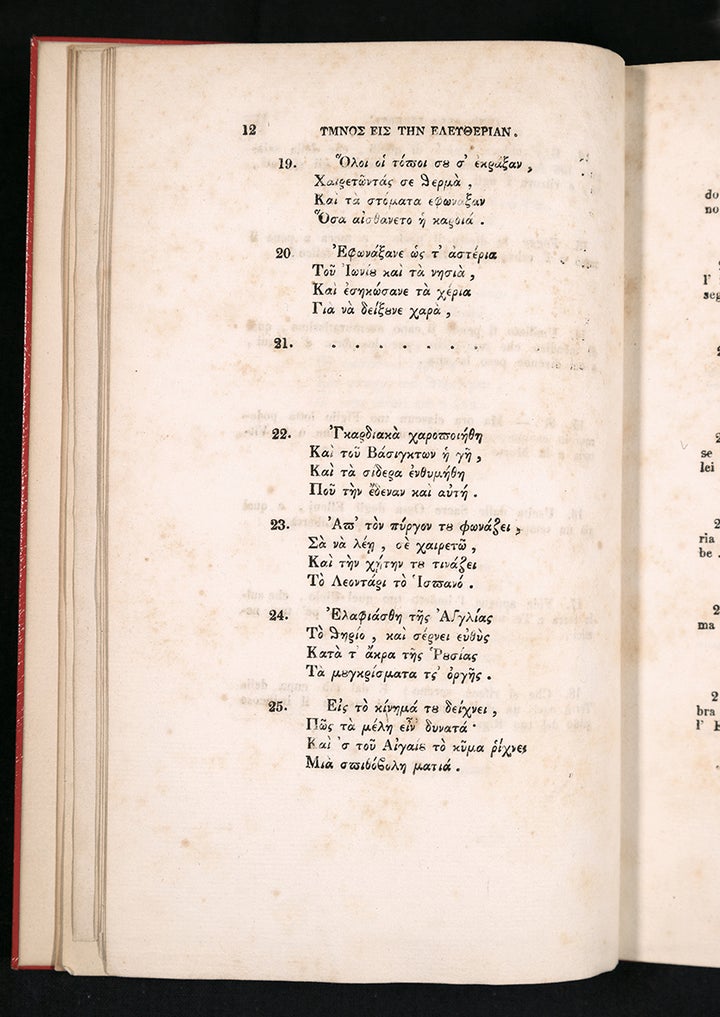 12 ΥΜΝΟΣ ΕΙΣ ΤΗΝ ΕΛΕΥΘΕΡΙΑΝ.
19. Ὅλοι οἱ τόποι σȣ σ' ἐκραξαν,
Χαιρετῶντάς σε ϑερμὰ,
Καὶ τὰ στόματα εφωναξαν
Ὅσα αἰσθανετο ἡ καρδιά.
20 Ἐφωνάξανε ὡς τ' ἀστέρια
Τοῦ Ἰωνίȣ καὶ τὰ νησιὰ,
Καὶ ἐσηκώσανε τὰ χέρια
Γιὰ νὰ δείξȣνε χαρὰ,
21. . . . . . . . .
22. Ἐγκαρδιακὰ χαροποιήθη
Καὶ τοῦ Βάσιγκτων ἡ γῆ,
Καὶ τὰ σίδερα ἐνθυμήθη
Ποῦ τὴν ἔδεναν καὶ αὐτή.
23. Ἀπ' τὸν πύργον τȣ φωνάζει,
Σὰ νὰ λέῃ, σὲ χαιρετῶ,
Καὶ τὴν χήτην τȣ τινάζει
Τὸ Λεοντάρι τὸ Ἱσπανό.
24. Ἐλαφιάσθη τῆς Ἀγγλίας
Τὸ ϑηρίο, καὶ σέρνει εὐθὺς
Κατὰ τ' ἄκρα τῆς Ῥȣσίας
Τὰ μȣγκρίσματα τς' ὀργῆς.
25. Εἰς τὸ κίνημά τȣ δείχνει,
Πῶς τὰ μέλη εἶν' δυνατά·
Καὶ 'ς τοῦ Αἰγαίȣ τὸ κῦμα ῥίχνει
Μιὰ σπιθόβολη ματιά.
do
no
l'
seg
se
lei
ria
be.
ma
bra
l'